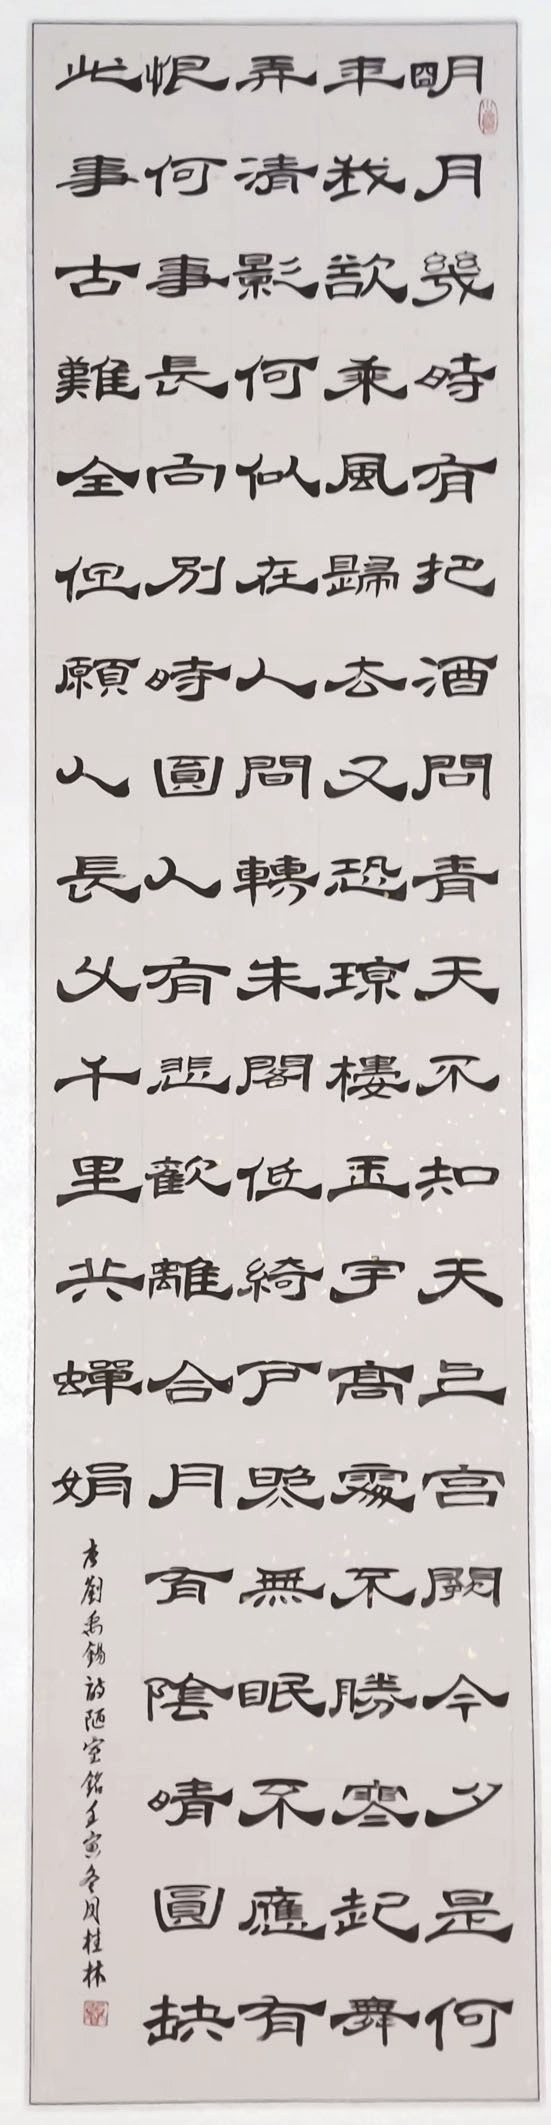 明月幾時有把酒問青天不知天上宮闕今夕是何
年我欲乘風歸去又恐瓊樓玉宇高處不勝寒起舞
弄清影何似在人間轉朱閣低綺戶照無眠不應有
恨何事長向別時圓人有悲歡離合月有陰晴圓缺
此事古難全但願人長久千里共蟬娟
唐劉禹錫詩陋室銘壬寅冬月桂林